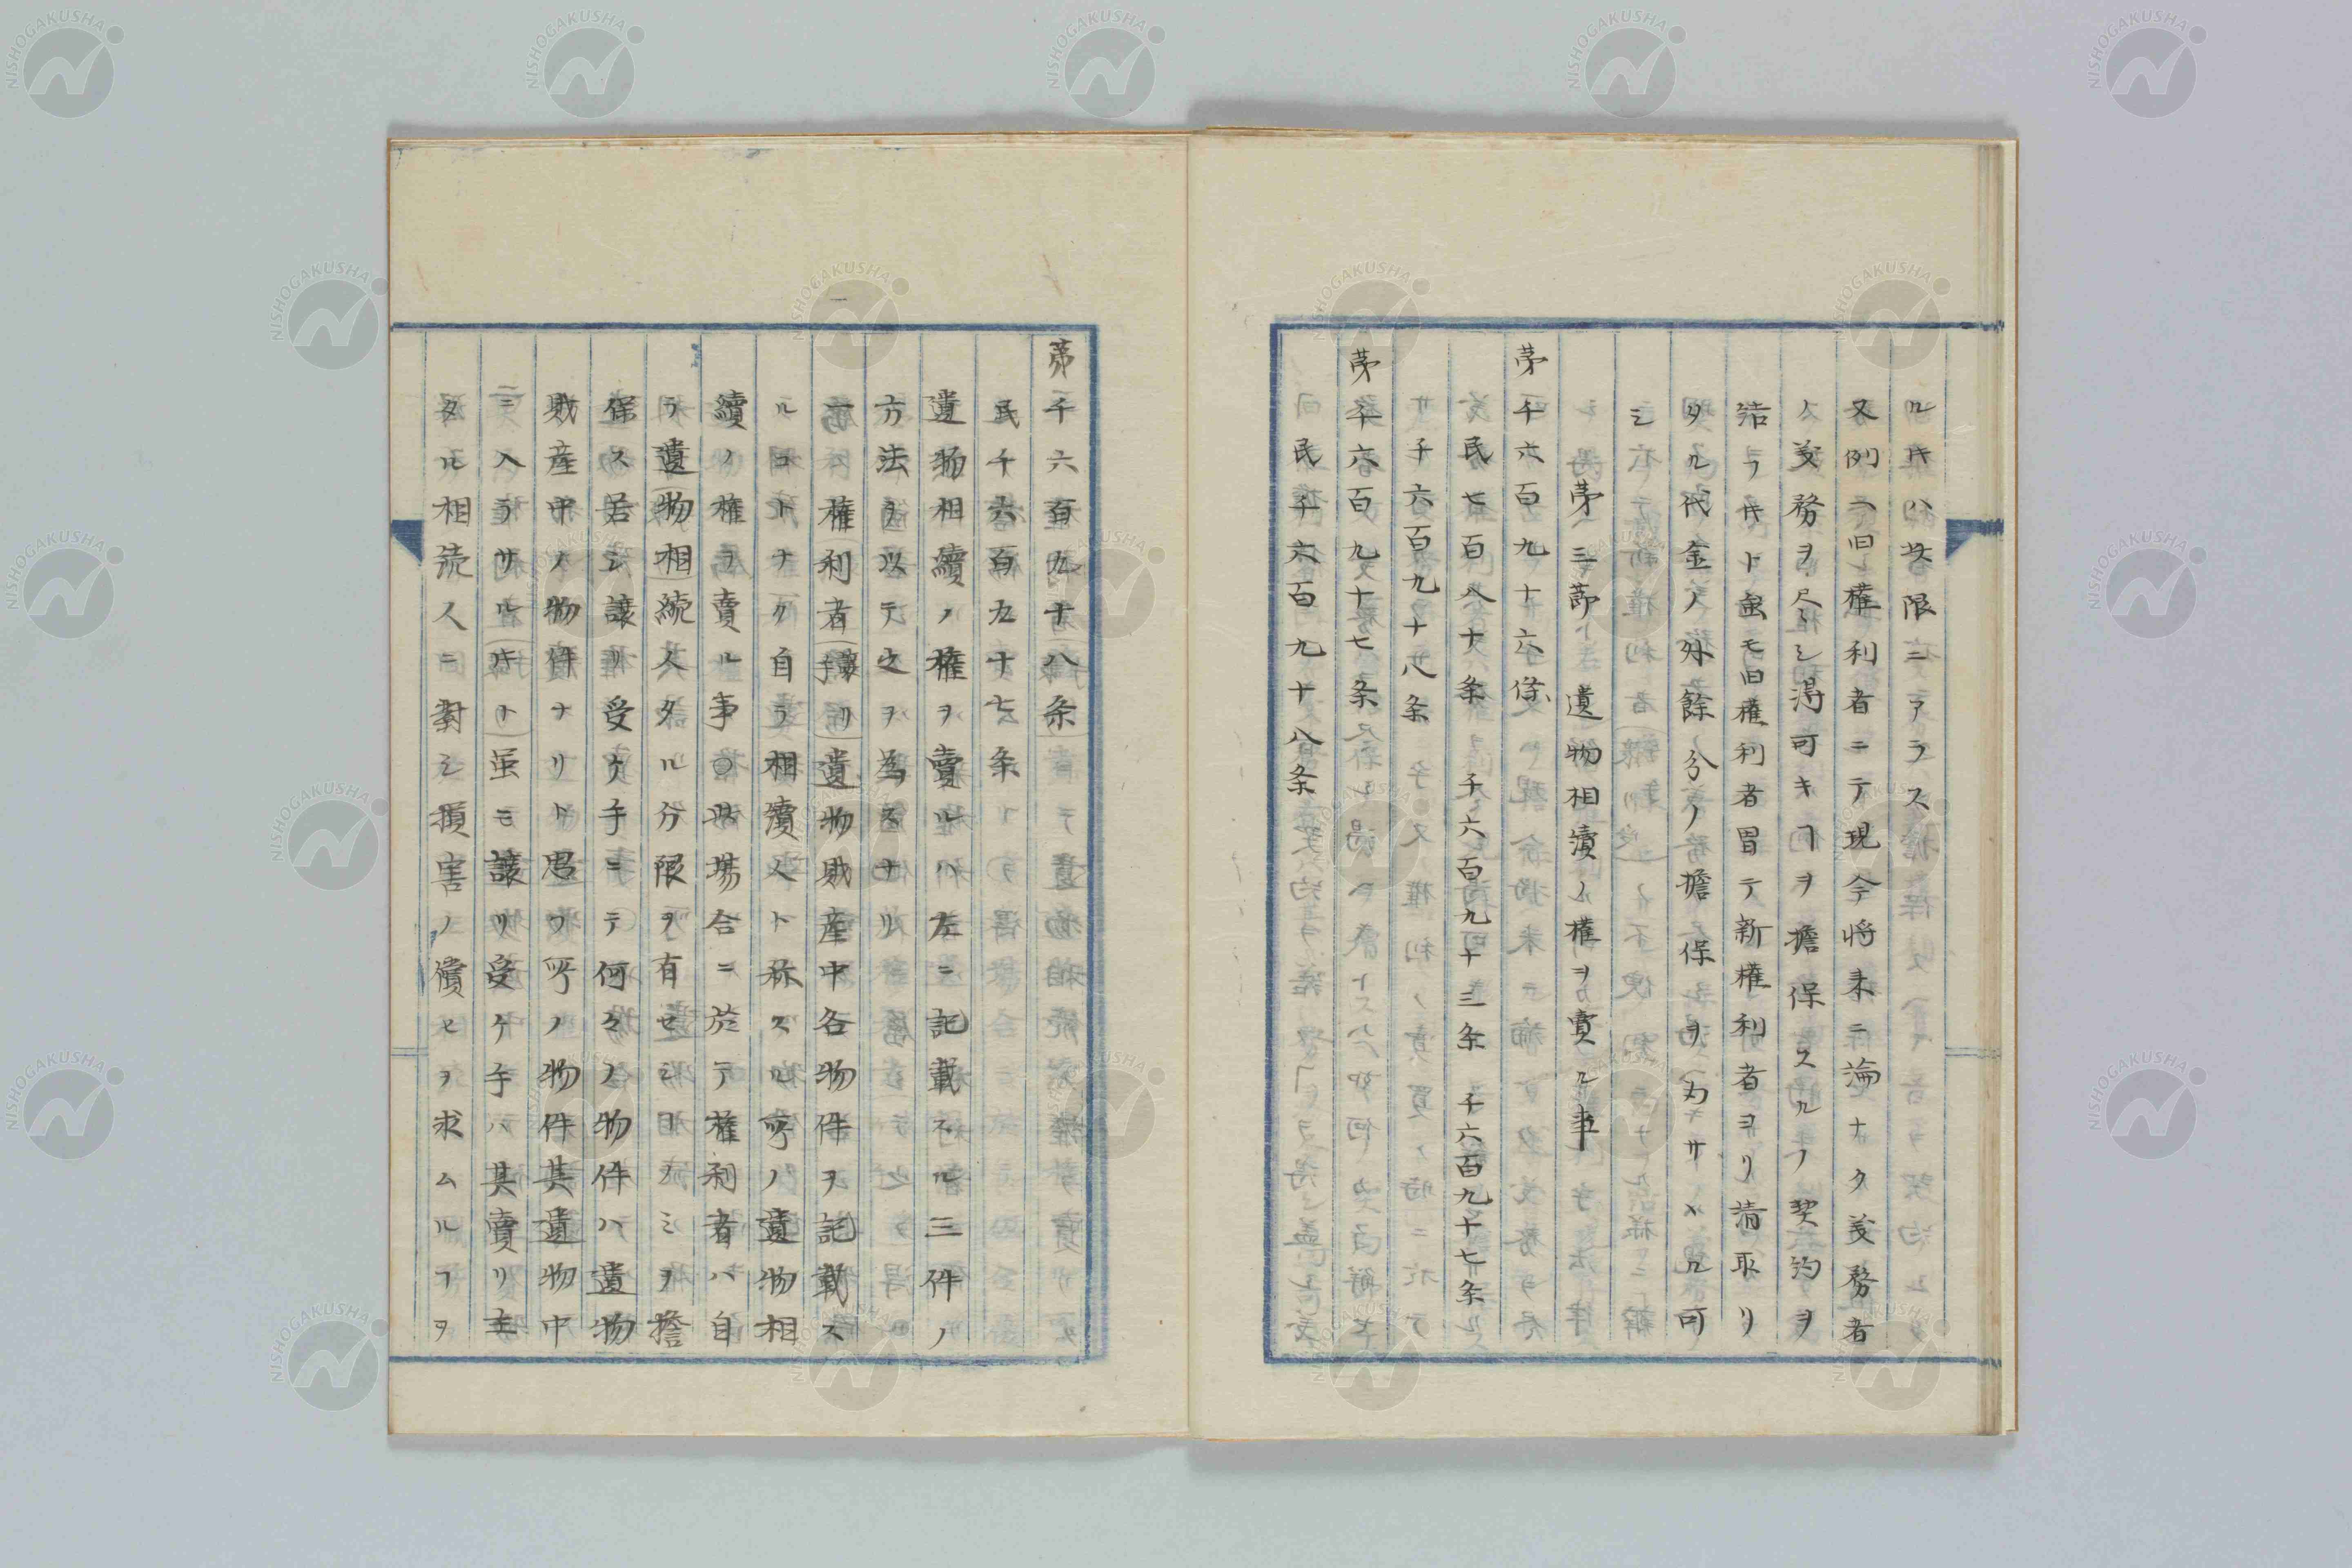 ル𪜈ハ此限ニアラス
又例ヘハ旧権利者ニテ現今将来ニ論ナク義務者
ノ義務ヲ尽シ得可キヿヲ擔保スルノ契約ヲ
結フ𪜈ト虽モ旧権利者曽テ新権利者ヨリ請取リ
タル代金ノ外餘分ノ擔保ヲ為サヽル可
シ
第三節 遺物相續ノ権ヲ賣ル事
第千六百九十六條
民七百八十条 千六百九十三条 千六百九十七条
千六百九十八条
第千六百九十七条
民千六百九十八条
第千六百九十八条
民千六百九十七条
遺物相續ノ権ヲ賣ルハ左ニ記載スル三件ノ
方法ヲ以テ之ヲ為スナリ
一権利者(譲リ手)遺物財産中各物件ヲ記載ス
ルコトナク自ラ相續人ト称スル所ノ遺物相
續ノ権ヲ賣ル事○此場合ニ於テ権利者ハ自
ラ遺物相続人タル分限ヲ有セシヿノミヲ擔
保ス若シ譲リ受ケ手ニテ何々ノ物件ハ遺物
財産中ノ物件ナリト思フ所ノ物件其遺物中
ニ入ラサル𪜈ト虽モ譲リ受ケ手ハ其賣リ主
タル相続人ニ對シ損害ノ償ヒヲ求ムルヿヲ
NISHOGAKUSHA